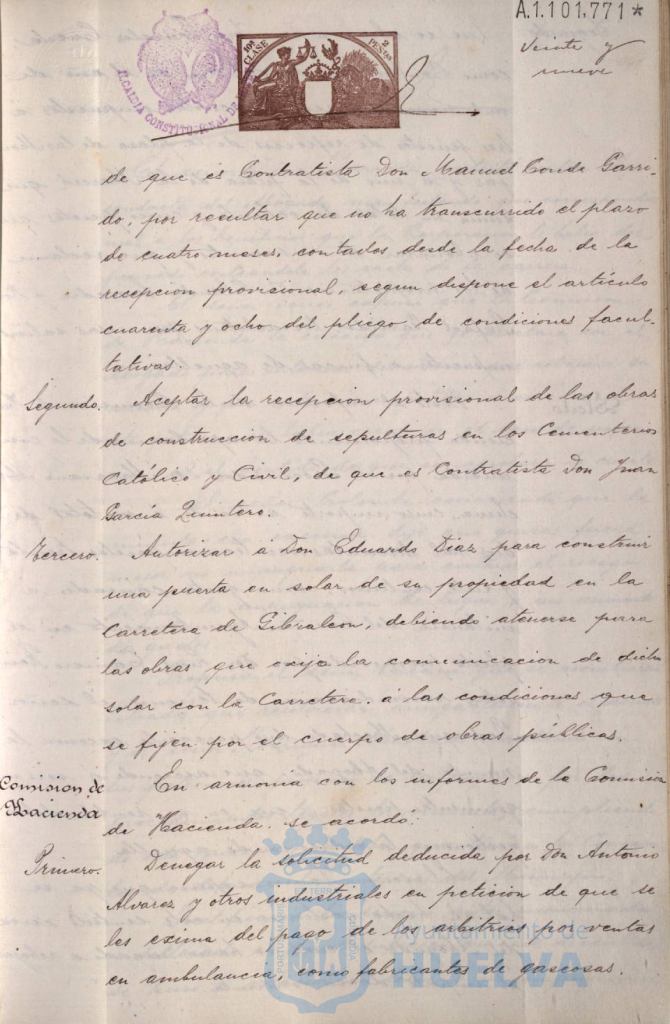 A.1.101,771*
Veinte y
nueve
10ª CLASE
2 PESETAS
ALCALDIA CONSTITUCIONAL DE
de que es Contratista Don Manuel Conde Garri-
do, por resultar que no ha transcurrido el plazo
de cuatro meses, contados desde la fecha de la
recepcion provisional, segun dispone el artículo
cuarenta y ocho del pliego de condiciones facul-
tativas.
Segundo. Aceptar la recepcion provisional de las obras
de construccion de sepulturas en los Cementerios
Católico y Civil, de que es Contratista Don Juan
García Quintero.
Tercero. Autorizar á Don Eduardo Diaz para construir
una puerta en solar de su propiedad en la
Carretera de Gibraleon, debiendo atenerse para
las obras que exija la comunicacion de dicho
solar con la Carretera, á las condiciones que
se fijen por el cuerpo de obras públicas.
Comision de
Hacienda
En armonia con los informes de la Comision
de Hacienda se acordó:
Primero. Denegar la solicitud deducida por Don Antonio
Alvarez y otros industriales en peticion de que se
les exima del pago de los arbitrios por ventas
en ambulancia, como fabricantes de gaseosas.
Ayuntamiento de
HUELVA